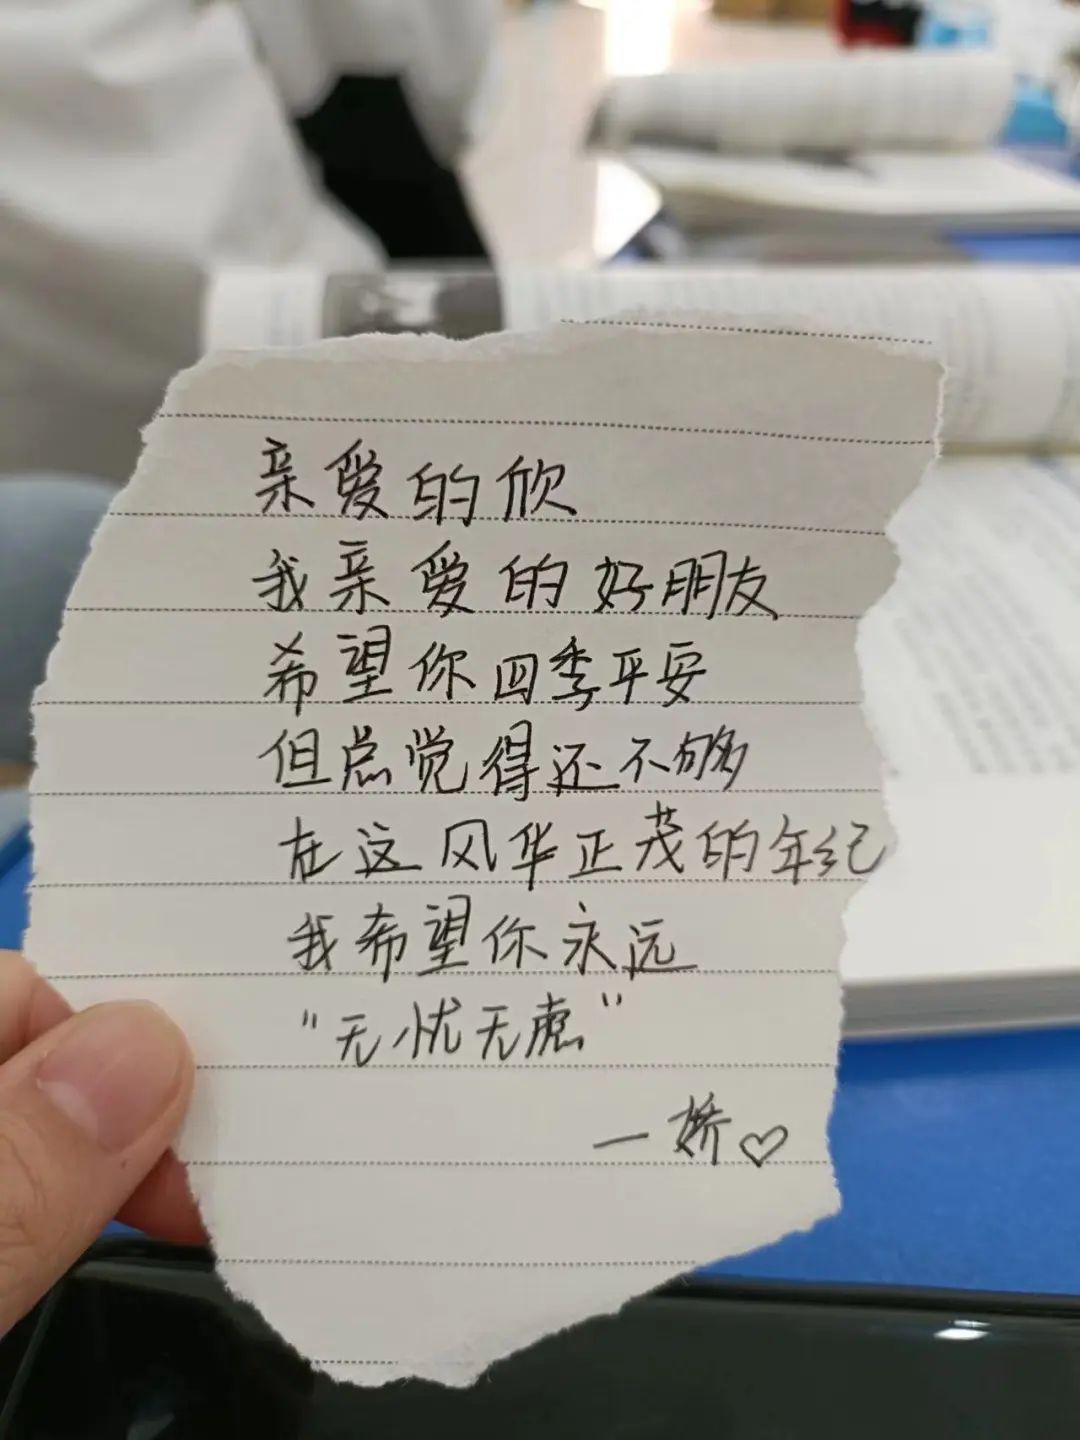 亲爱的欣
我亲爱的好朋友
希望你四季平安
但总觉得还不够
在这风华正茂的年纪
我希望你永远
"无忧无虑"
—娇♡